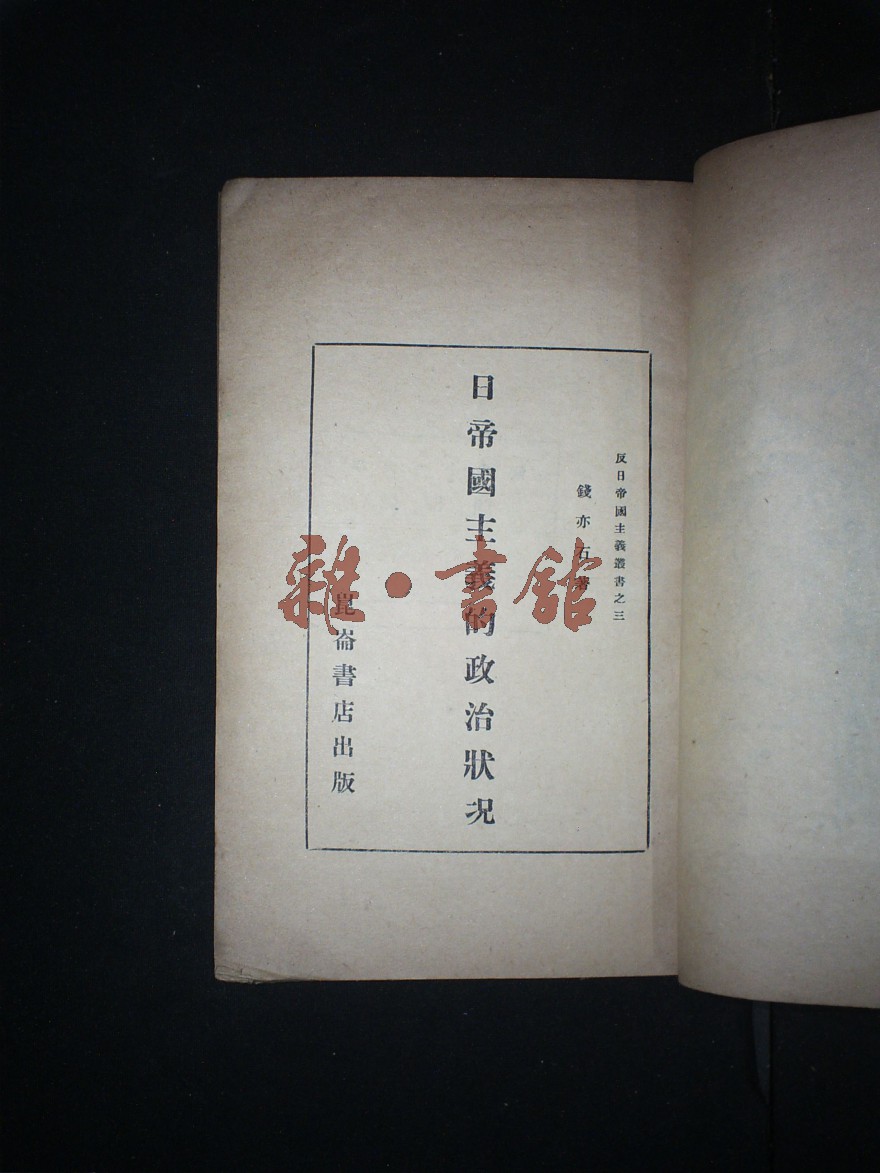 反日帝國主義叢書之三
錢亦石著
日帝國主義的政治狀況
崑崙書店出版
雜·書館